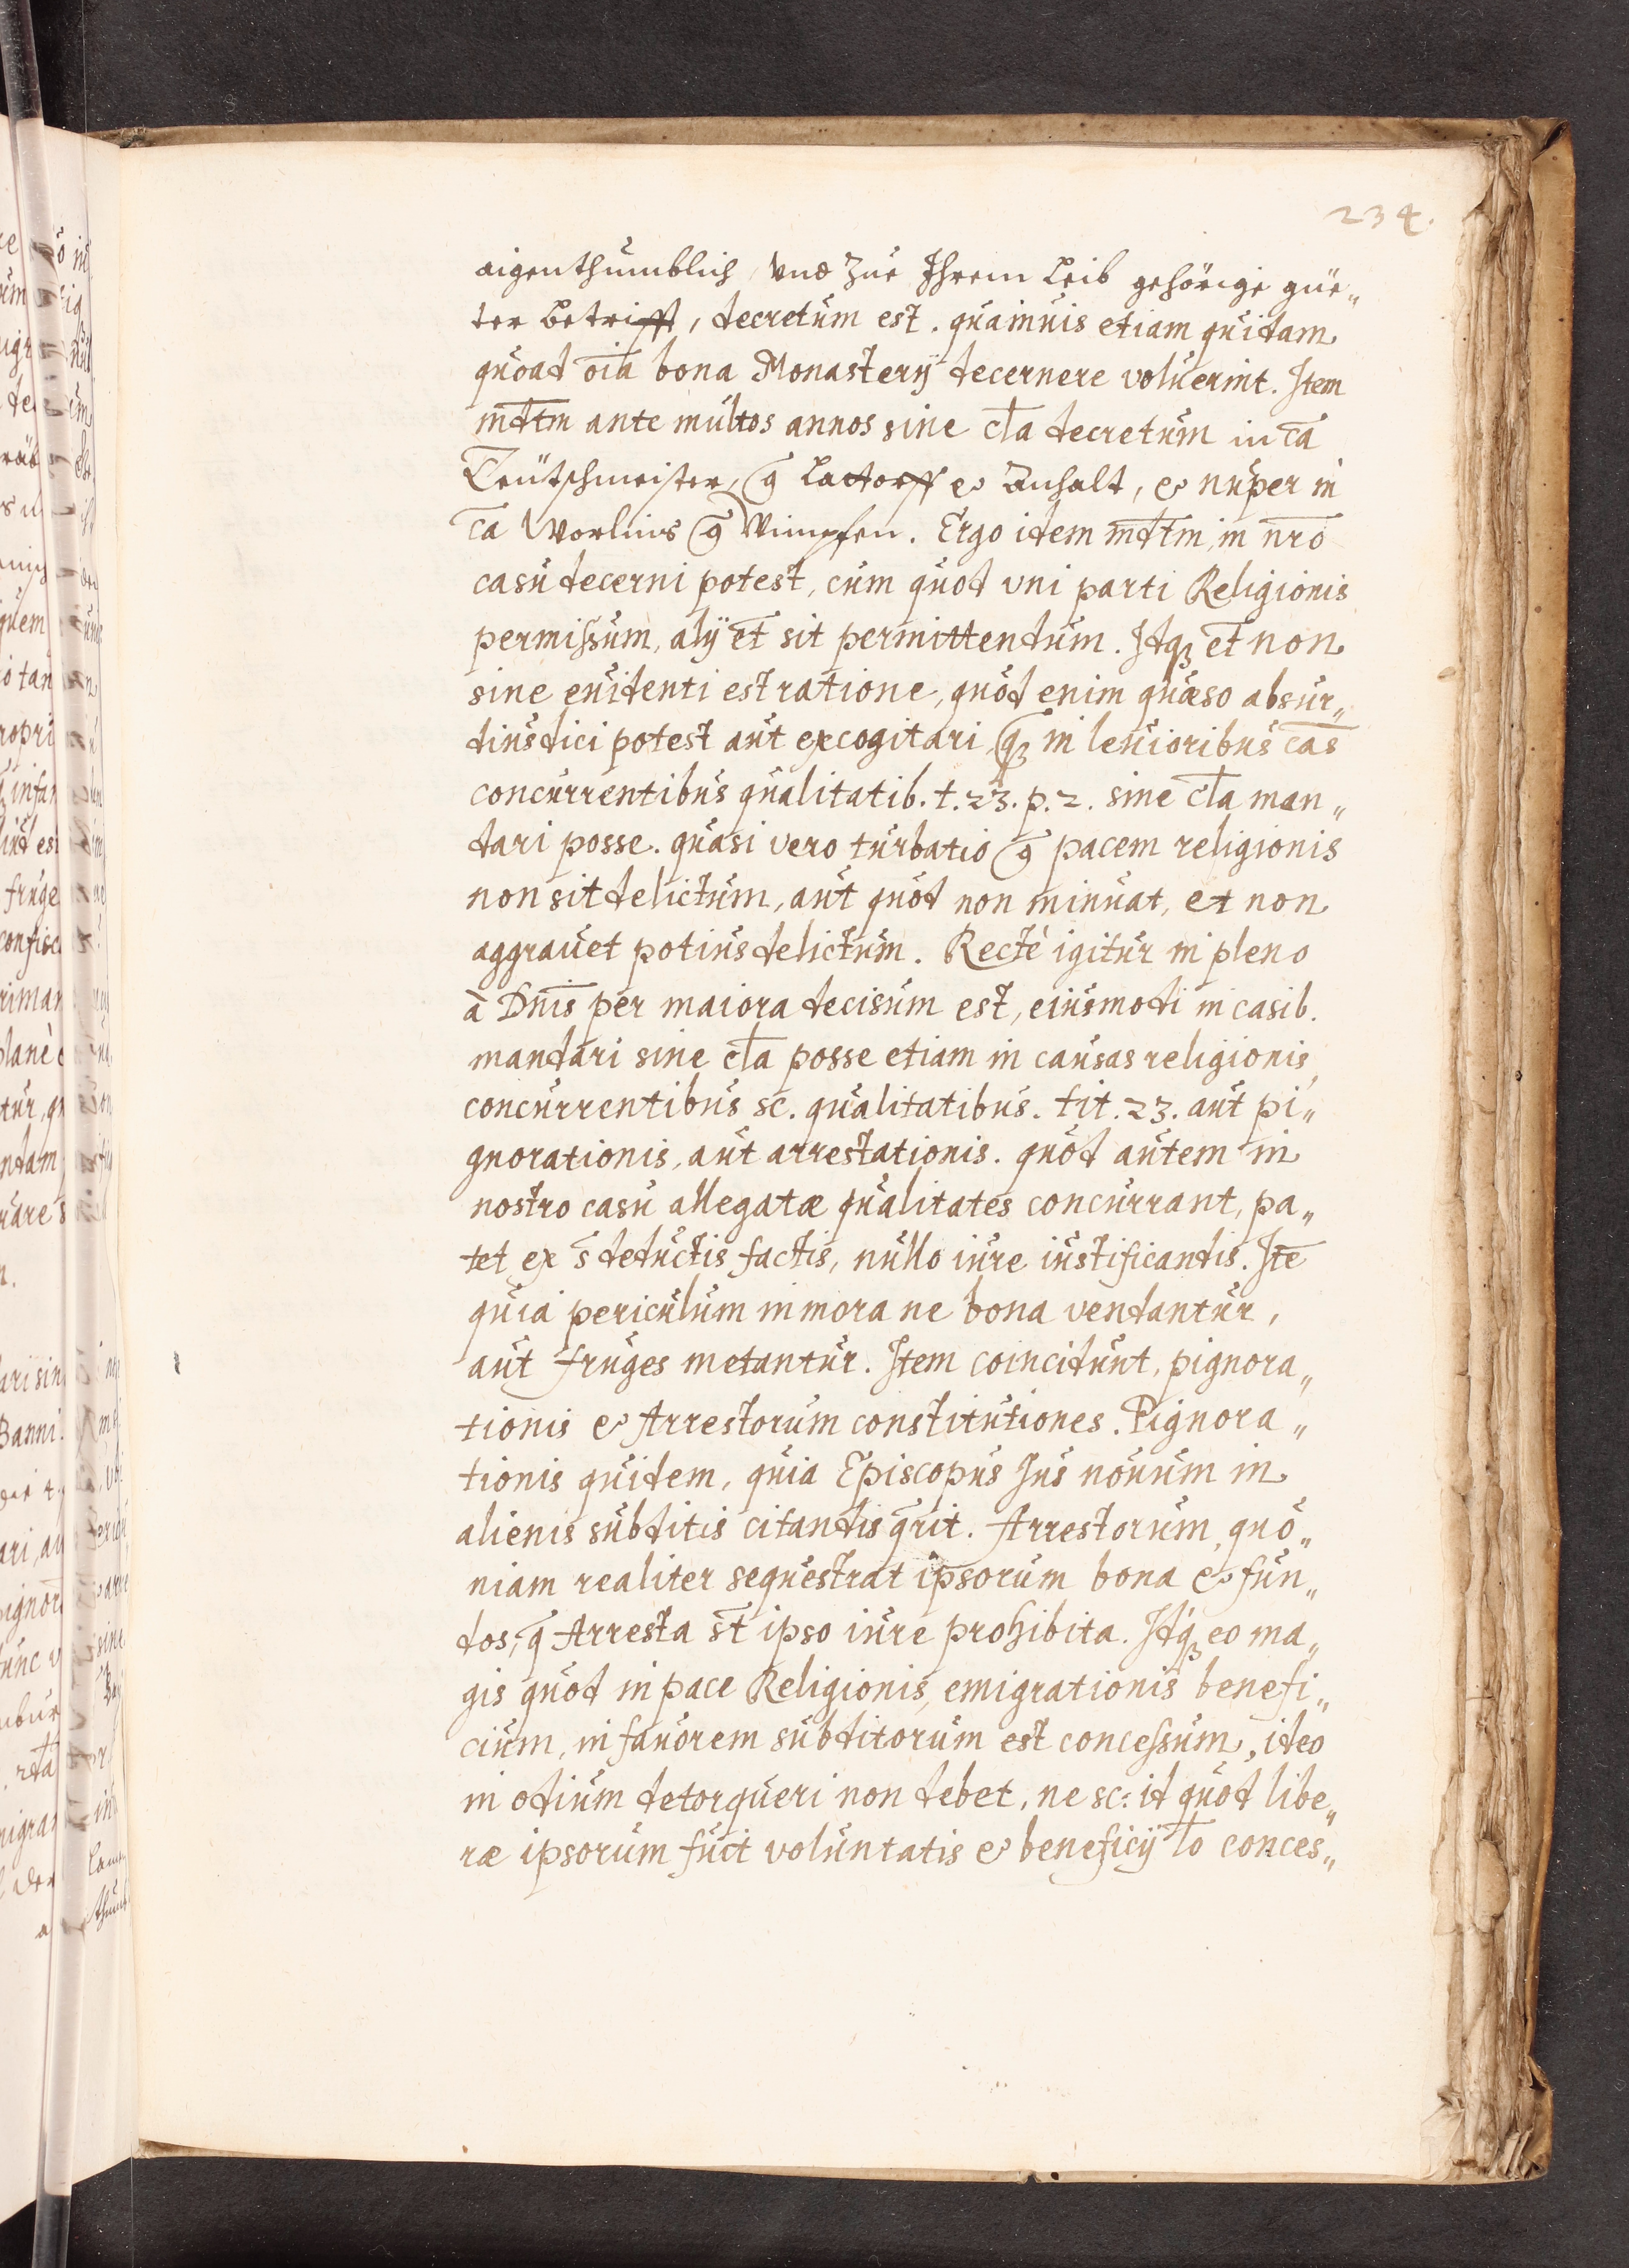 234.
aigenthumblich, vnd zue Ihrem Leib gehörige güe„
ter betrifft, decretum est. quamuis etiam quidam
quoad oı̅a bona Monasterij decernere voluerint. Item
md̅tm ante multos annos sine cl̅a decretum in ca̅
Teütschmeister, c̅ Lattorff & Anhalt, & nuper in
ca̅ Worlins c̅ Wimpfen. Ergo idem md̅tm, in nr̅o
casu decerni potest, cum quod vni parti Religionis
permissum, alij et̅ sit permittendum. Idq3 et̅ non
sine euidenti est ratione, quod enim quæso absur„
dius dici potest aut excogitari, q̅3 in leuioribus ca̅s
concurrentibus qualitatib. t. 23. p. 2. sine cl̅a man„
dari posse. quasi vero turbatio c̅ pacem religionis
non sit delictum, aut quod non minuat, et non
aggrauet potius delictum. Rectè igitur in pleno
à Dn̅is per maiora decisum est, eiusmodi in casib.
mandari sine cl̅a posse etiam in causas religionis,
concurrentibus sc. qualitatibus. tit. 23. aut pi„
gnorationis, aut arrestationis. quod autem in
nostro casu allegatæ qualitates concurrant, pa„
tet ex s̅ deductis factis, nullo iure iustificandis. Ite̅
quia periculum in mora ne bona vendantur,
aut fruges metantur. Item coincidunt, pignora„
tionis & Arrestorum constitutiones. Pignora„
tionis quidem, quia Episcopus Jus nouum in
alienis subditis citandis q̅rit. Arrestorum, quo„
niam realiter sequestrat ipsorum bona & fun„
dos, q̅ Arresta s̅t ipso iure prohibita. Idq3 eo ma„
gis quod in pace Religionis, emigrationis benefi„
cium, in fauorem subditorum est concessum, ideo
in odium detorqueri non debet, ne sc: id quod libe„
ræ ipsorum fuit voluntatis & beneficij l̅o conces„